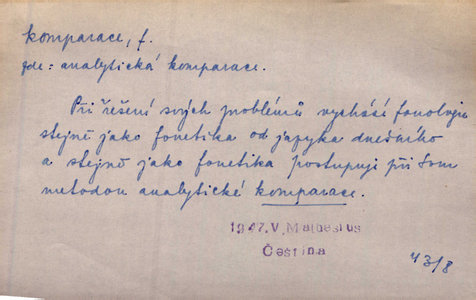 komparace, f.
zde: analytická komparace.
Při řešení svých problémů vychází fonologie
stejně jako fonetika od jazyka dnešního
a stejně jako fonetika postupuje při tom
metodou analytické komparace.
1947, V. Mathesius
Čeština
43/8